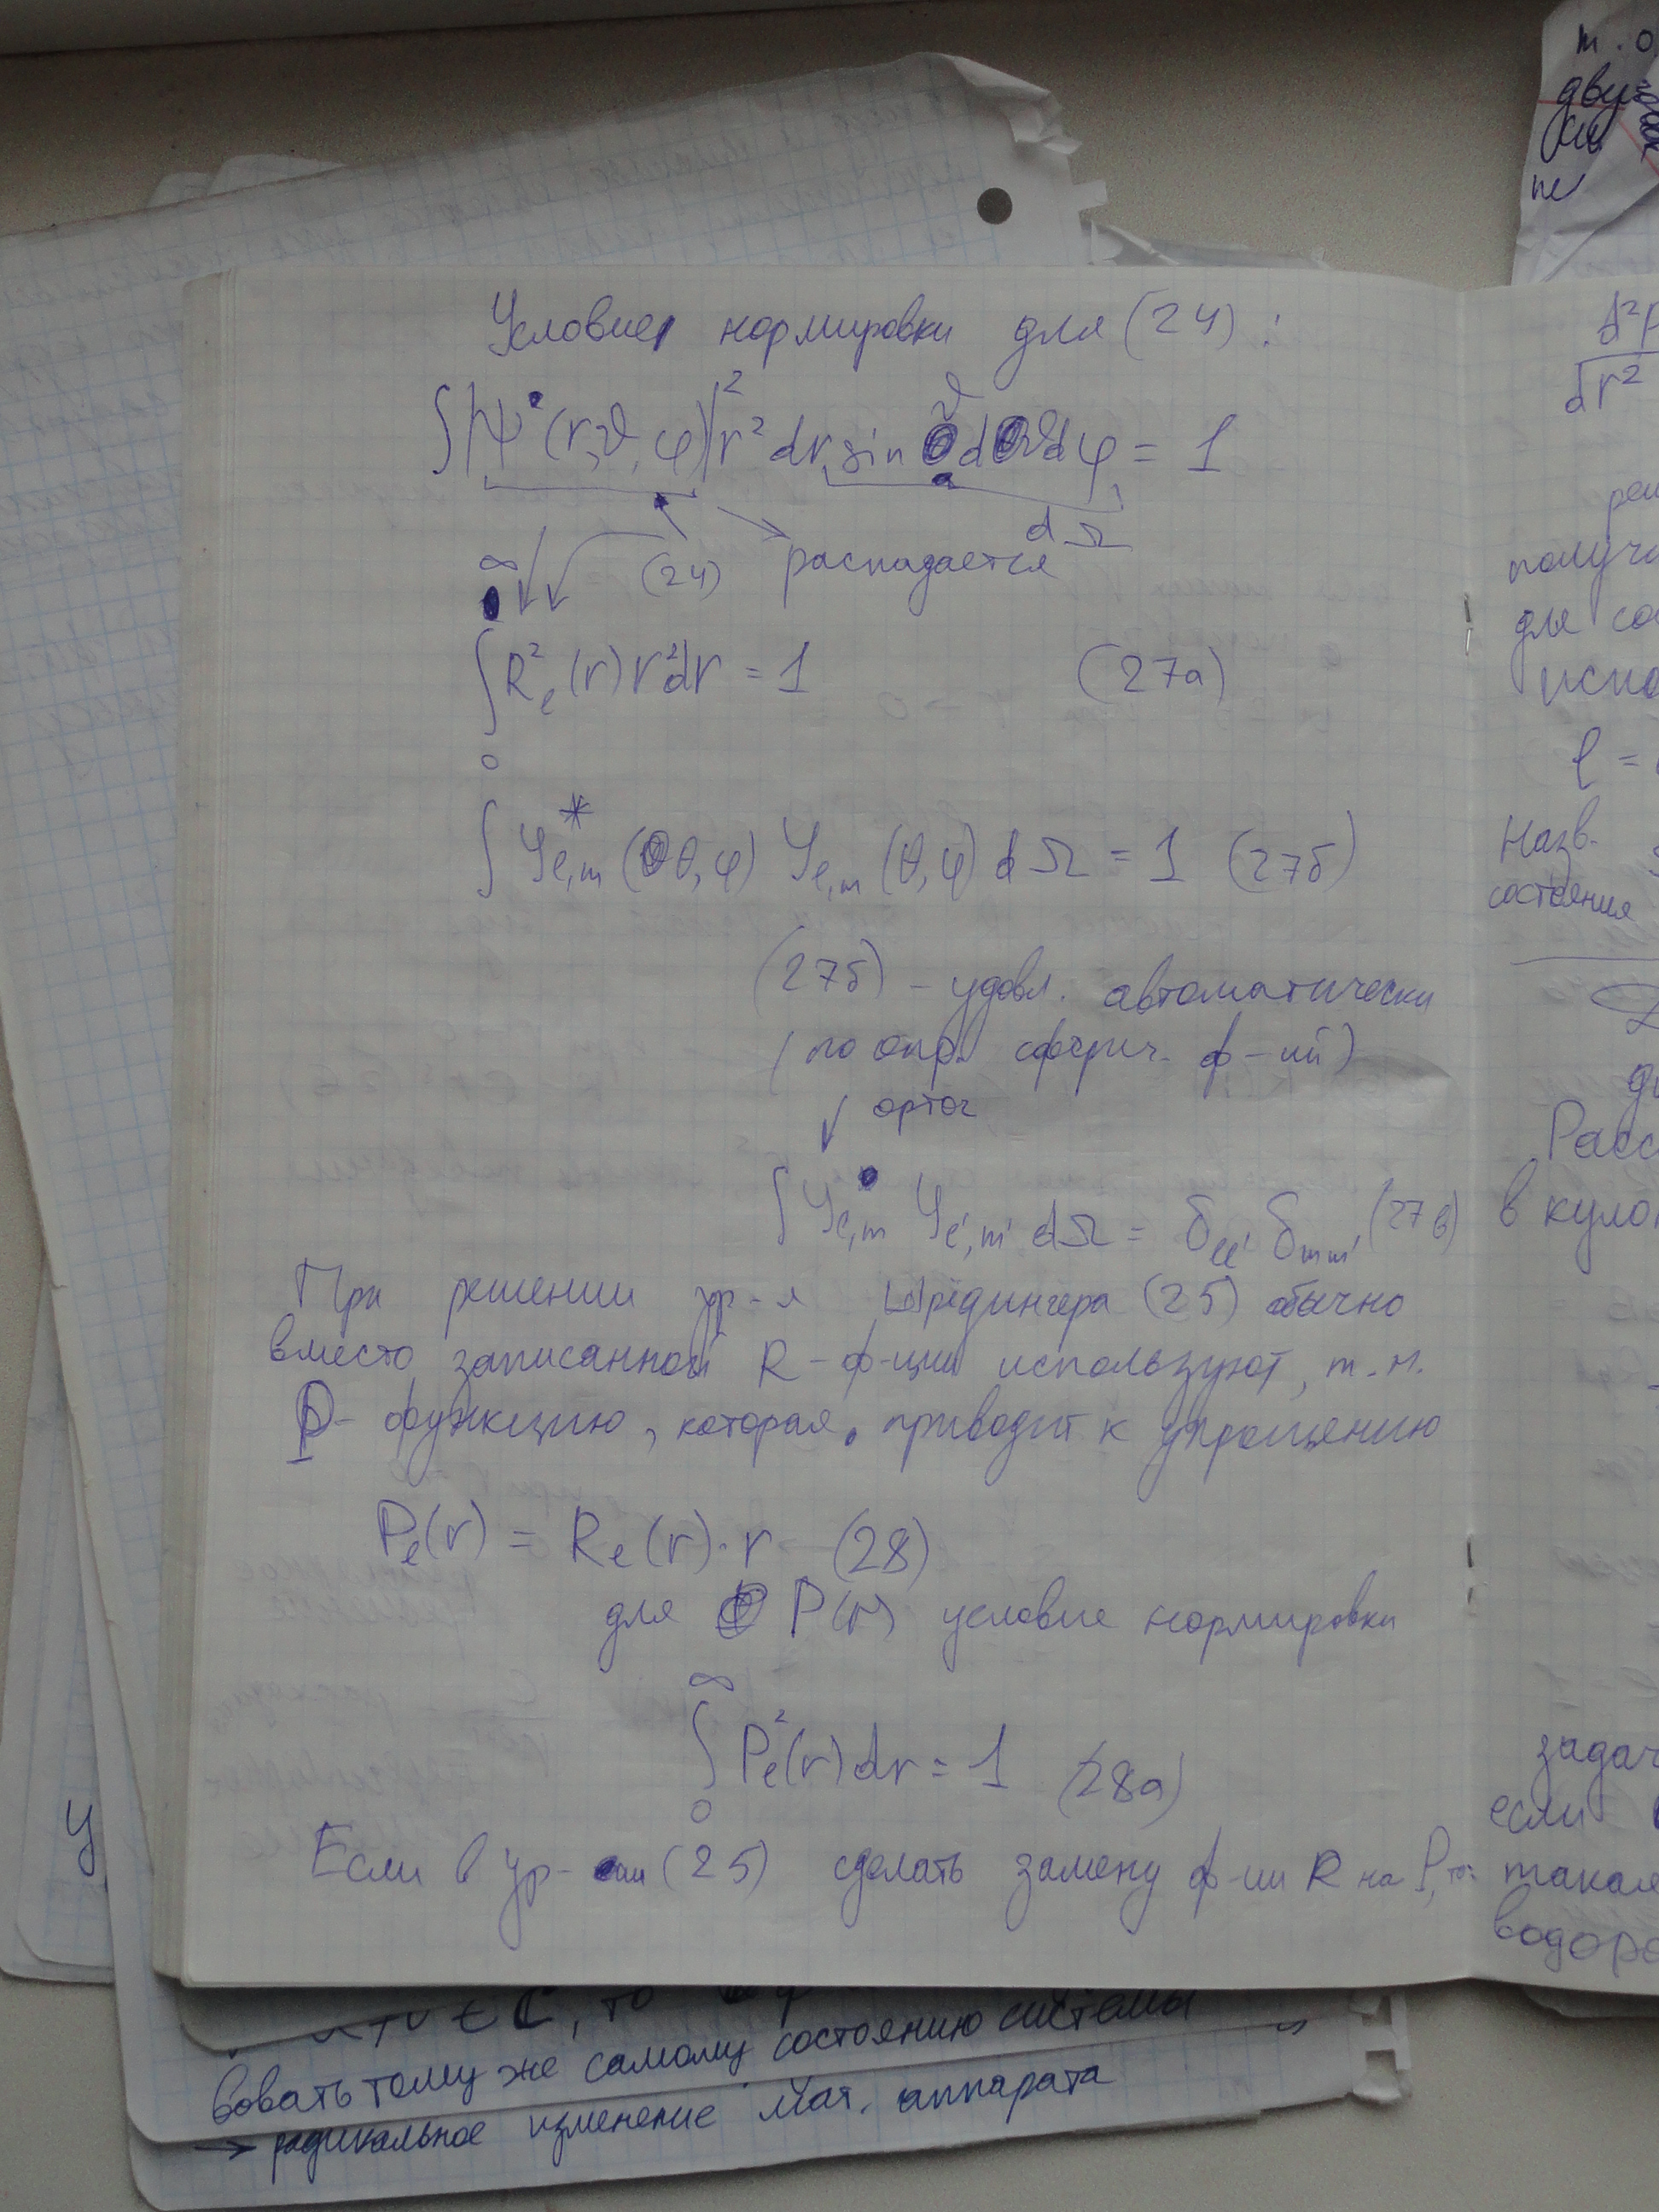 Условие нормировки для (24):
∫|Ψ(r,ϑ,φ)|² r² dr sin ϑ dϑ dφ = 1
dΩ
(24) распадается
∞
∫ R²ₑ(r) r² dr = 1 (27а)
0
∫ Y*ₗ,ₘ(θ,φ) Yₗ,ₘ(θ,φ) dΩ = 1 (27б)
(27б) – удовл. автоматически
(по опр. сферич. ф-ий)
↓ ортог
∫ Yₗ,ₘ Yₗ',ₘ' dΩ = δₗₗ' δₘₘ' (27в)
При решении ур-я Шрёдингера (25) обычно
вместо записанной R-ф-ции используют, т.н.
P- функцию, которая приводит к упрощению
Pₗ(r) = Rₗ(r)·r (28)
для P(r) условие нормировки
∞
∫ Pₗ²(r) dr = 1 (28а)
0
Если в ур-нии (25) сделать замену ф-ии R на P, то:
т.о
дву
d²P
dr²
получа
для со
испо
l =
Назв.
состояния
Расс
в куло
задач
если
такая
водоро
У
вовать тому же самому состоянию системы
→ радикальное изменение мат. аппарата